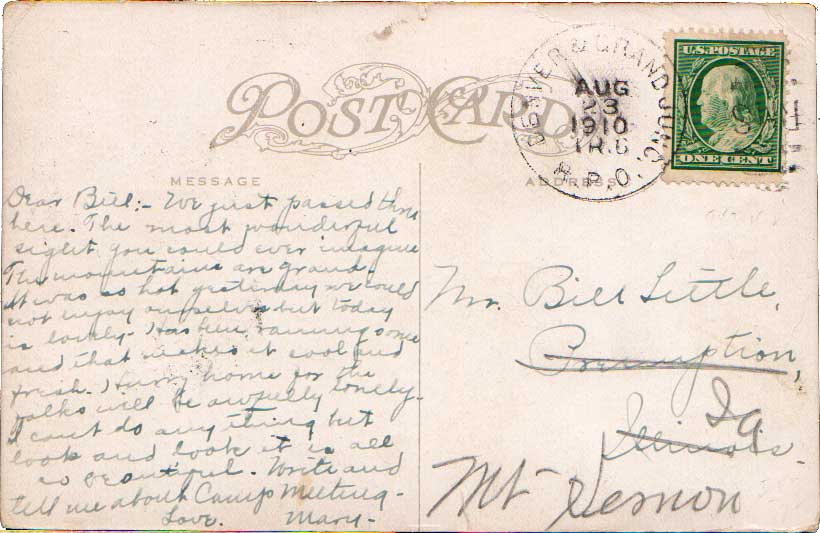 POST CARD
DENVER & GRAND JUNC.
AUG
23
1910
TR.6
R.P.O.
U.S. POSTAGE
ONE CENT
MESSAGE
ADDRESS
Dear Bill:- We just passed thru
here. The most wonderful
sight you could ever imagine
The mountains are grand.
It was so hot yesterday we could
not enjoy ourselves but today
is lovely- Has been raining some
and that makes it cool and
fresh. Hurry home for the
folks will be awfully lonely-
I cant do anything but
look and look it is all
so beautiful. Write and
tell me about Camp Meeting-
Love. Mary-
Mr. Bill Little,
Preemption,
Ia
Illinois-
Mt Vernon